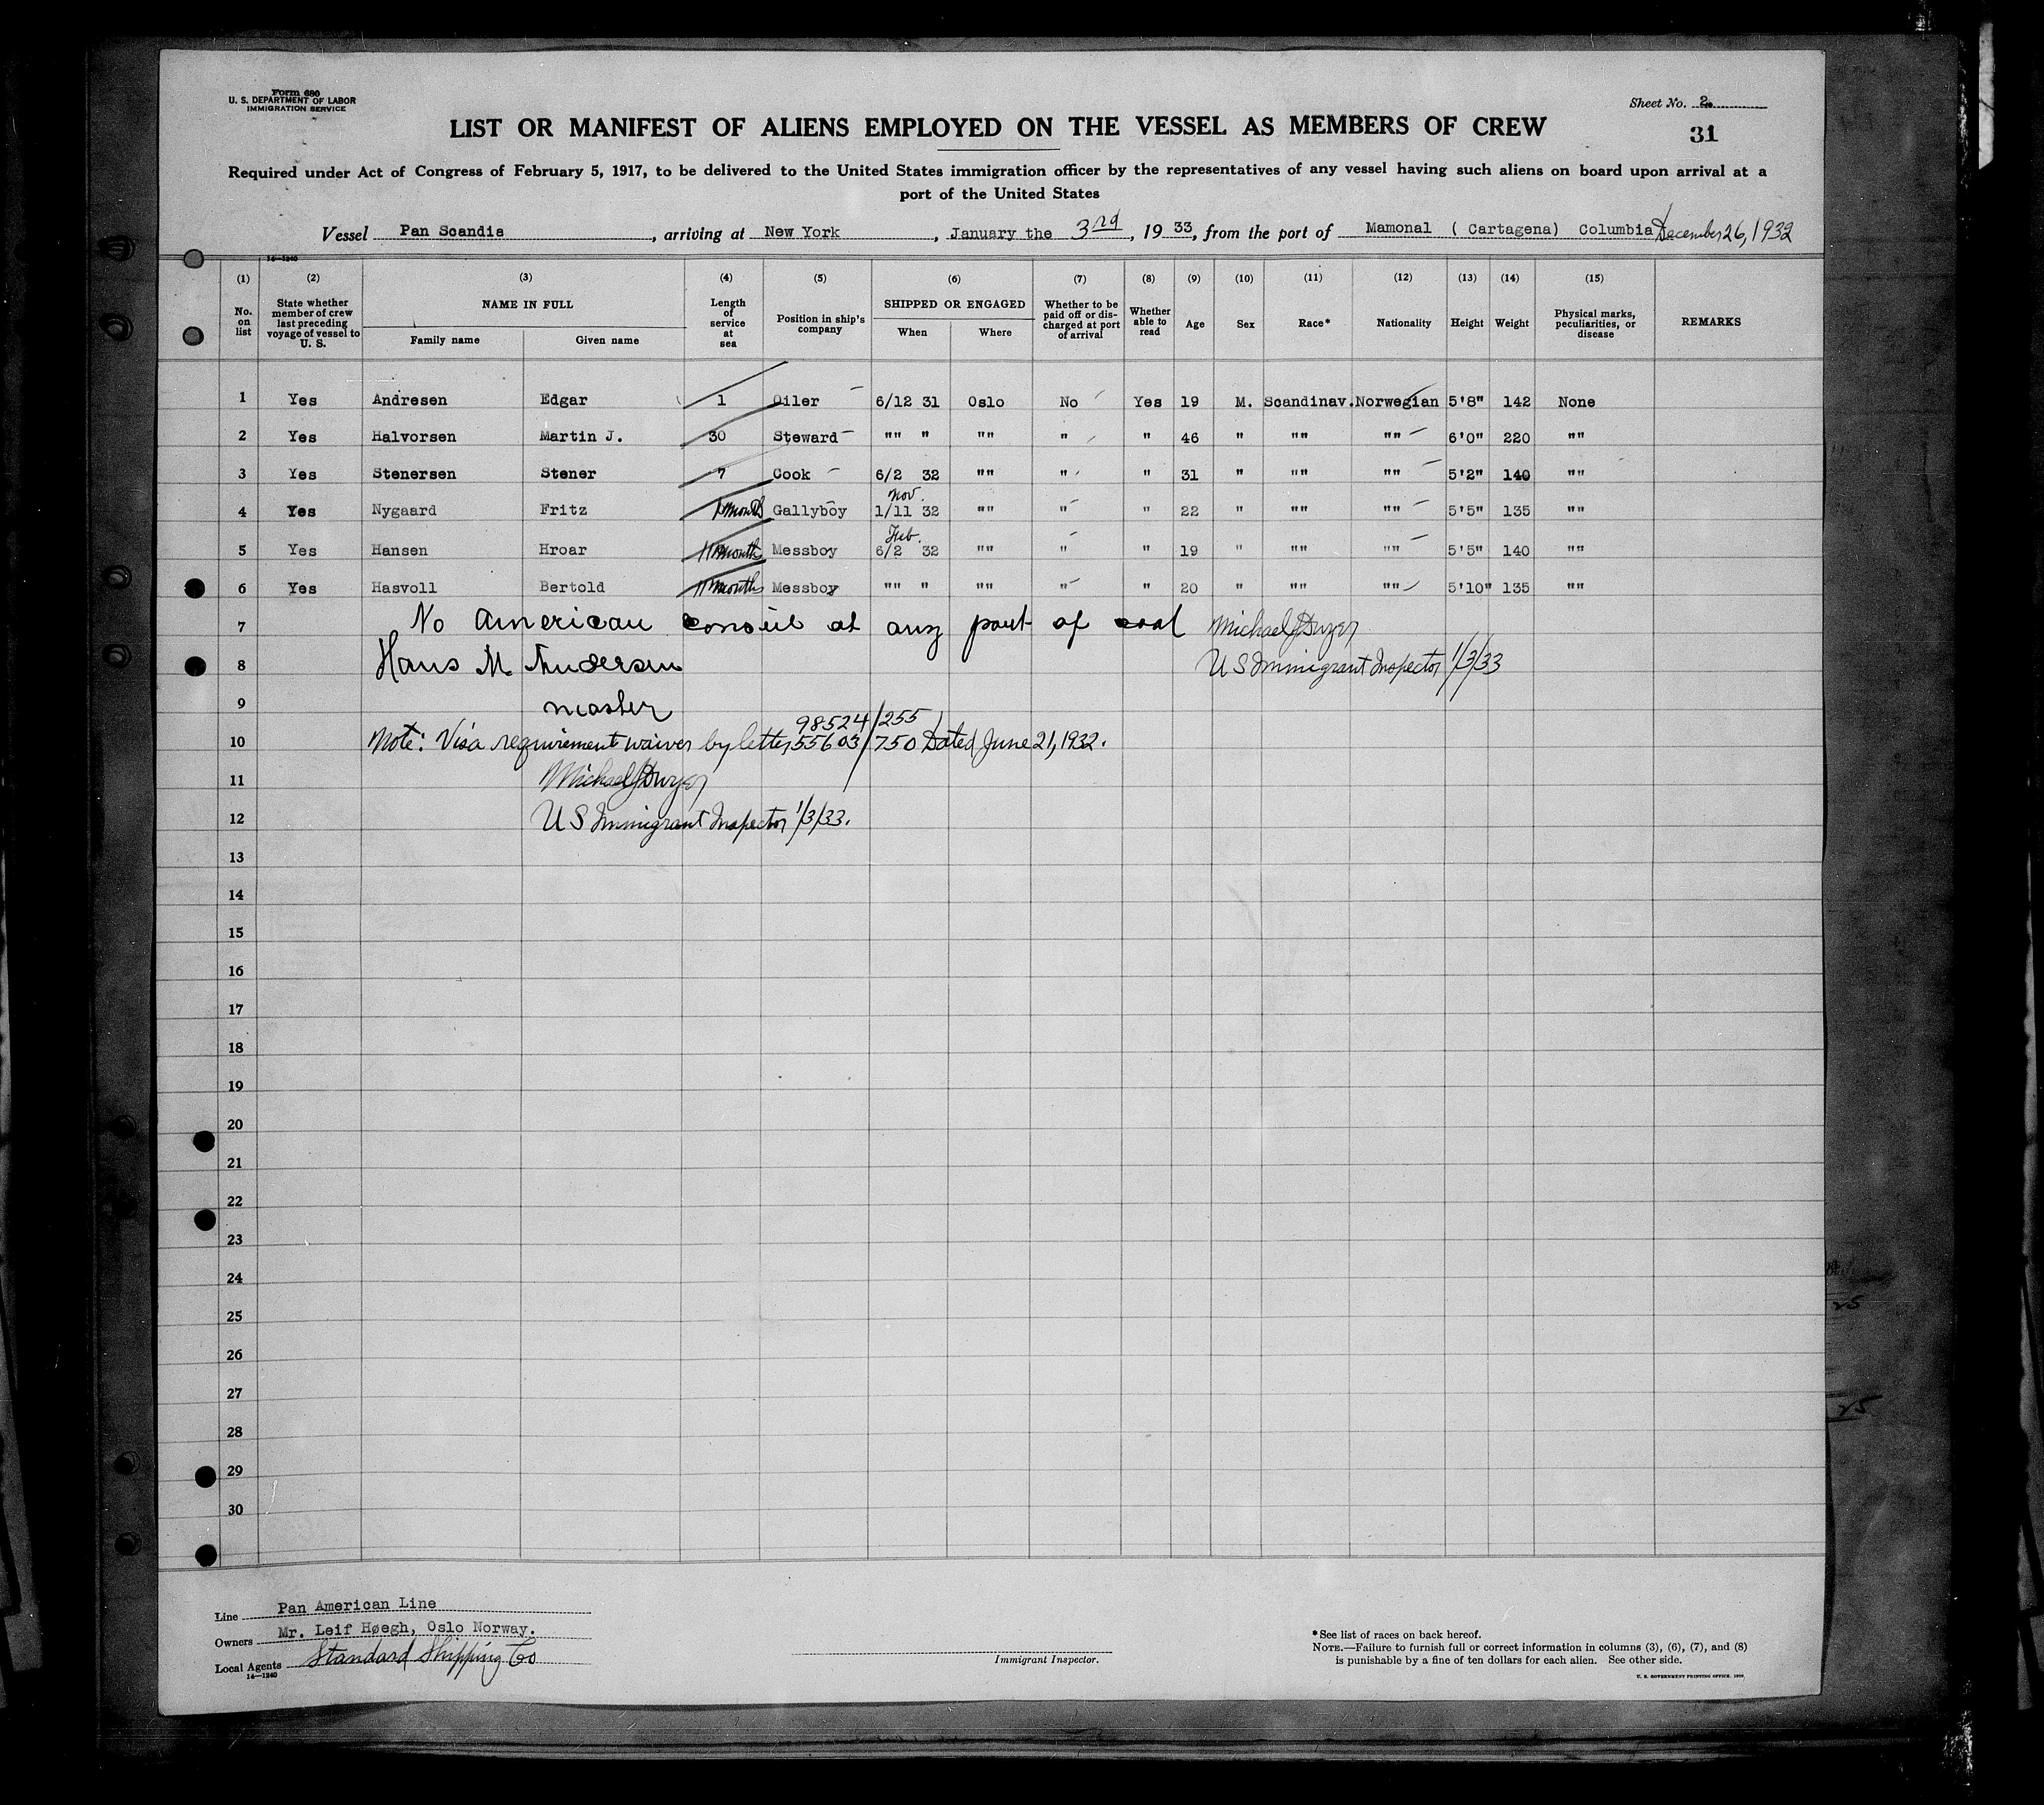 Form 680
U. S. DEPARTMENT OF LABOR
IMMIGRATION SERVICE
Sheet No. 2
LIST OR MANIFEST OF ALIENS EMPLOYED ON THE VESSEL AS MEMBERS OF CREW
31
Required under Act of Congress of February 5, 1917, to be delivered to the United States immigration officer by the representatives of any vessel having such aliens on board upon arrival at a
port of the United States
Vessel Pan Scandia, arriving at New York, January the 3rd, 1933, from the port of Mamonal ( Cartagena) Columbia December 26, 1932
14—1240
(1) (2) (3) (4) (5) (6) (7) (8) (9) (10) (11) (12) (13) (14) (15)
No. on list State whether member of crew last preceding voyage of vessel to U. S. NAME IN FULL Family name Given name Length of service at sea Position in ship's company SHIPPED OR ENGAGED When Where Whether to be paid off or discharged at port of arrival Whether able to read Age Sex Race* Nationality Height Weight Physical marks, peculiarities, or disease REMARKS
1 Yes Andresen Edgar 1 Oiler 6/12 31 Oslo No Yes 19 M. Scandinav. Norwegian 5'8" 142 None
2 Yes Halvorsen Martin J. 30 Steward "" " "" " " 46 " "" "" 6'0" 220 ""
3 Yes Stenersen Stener 7 Cook 6/2 32 "" " " 31 " "" "" 5'2" 140 ""
4 Yes Nygaard Fritz 1 month Gallyboy Nov. 1/11 32 "" " " 22 " "" "" 5'5" 135 ""
5 Yes Hansen Hroar 11 months Messboy Feb. 6/2 32 "" " " 19 " "" "" 5'5" 140 ""
6 Yes Hasvoll Bertold 11 months Messboy "" " "" " " 20 " "" "" 5'10" 135 ""
7 No American consul at any port of call Michael J Dwyer
8 Hans M Andersen US Immigrant Inspector 1/3/33
9 master
98524/255
10 Note: Visa requirement waiver by letter 55603/750 Dated June 21, 1932.
11 Michael J Dwyer
12 US Immigrant Inspector 1/3/33.
13
14
15
16
17
18
19
20
21
22
23
24
25
26
27
28
29
30
Line Pan American Line
Owners Mr. Leif Høegh, Oslo Norway.
Local Agents Standard Shipping Co
14—1240
Immigrant Inspector.
*See list of races on back hereof.
NOTE.—Failure to furnish full or correct information in columns (3), (6), (7), and (8)
is punishable by a fine of ten dollars for each alien. See other side.
25
25